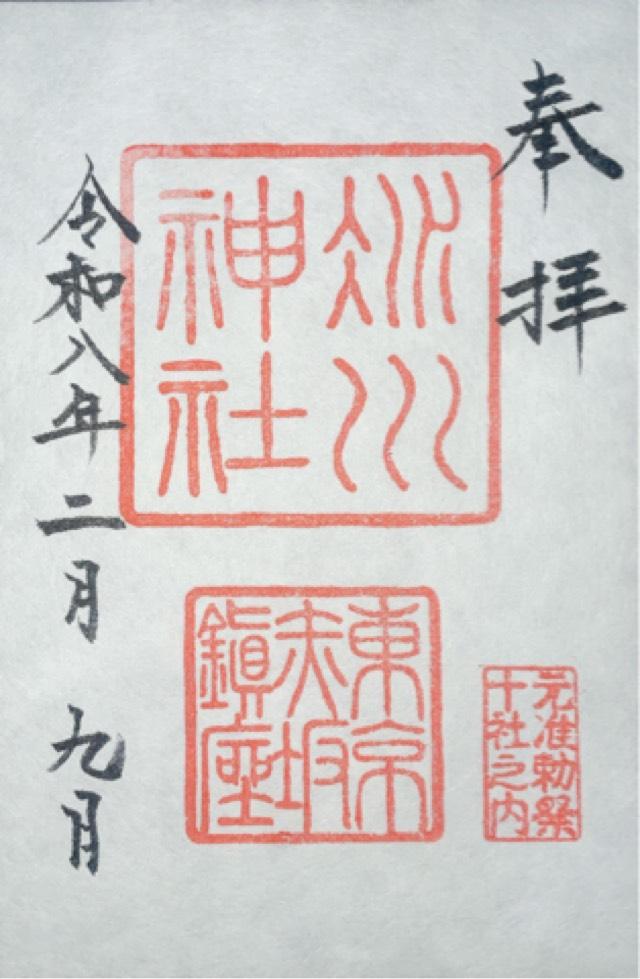 奉拝
冰川
神社
東京
赤坂
鎭座
元准勅祭
十社之内
令和八年二月九月